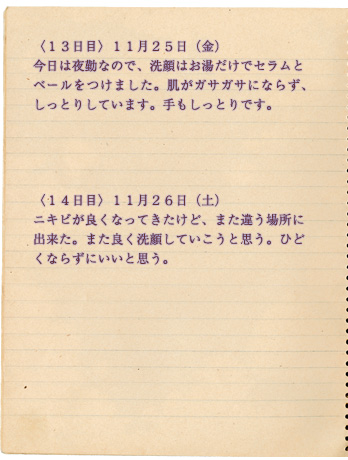 〈１３日目〉１１月２５日（金）
今日は夜勤なので、洗顔はお湯だけでセラムと
ベールをつけました。肌がガサガサにならず、
しっとりしています。手もしっとりです。
〈１４日目〉１１月２６日（土）
ニキビが良くなってきたけど、また違う場所に
出来た。また良く洗顔していこうと思う。ひど
くならずにいいと思う。